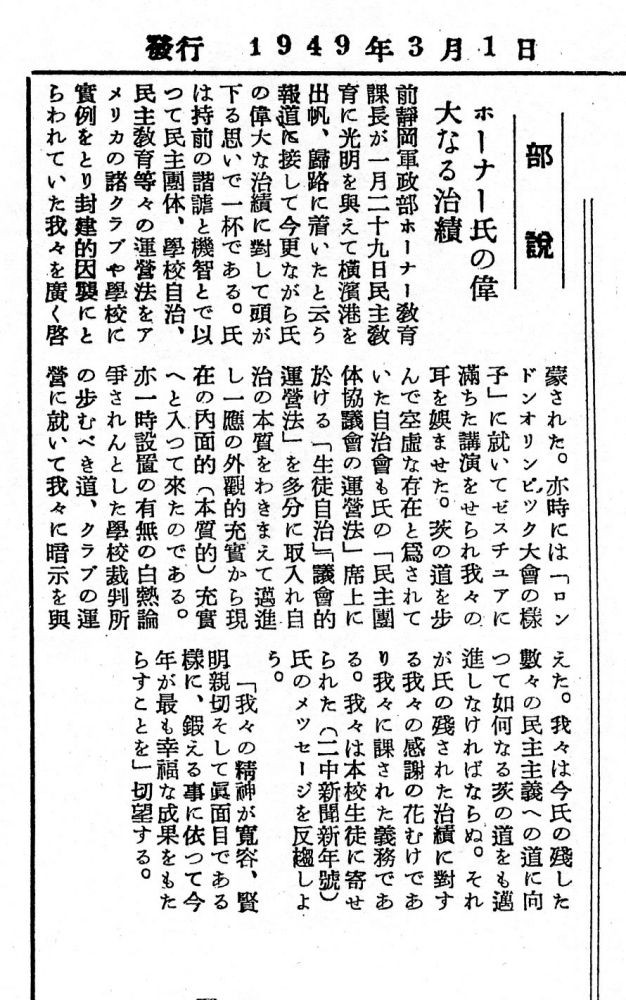 發行　1949年3月1日
部說
ホーナー氏の偉
大なる治績
前靜岡軍政部ホーナー教育
課長が一月二十九日民主敎
育に光明を與えて橫濱港を
出帆、歸路に着いたと云う
報道に接して今更ながら氏
の偉大な治績に對して頭が
下る思いで一杯である。氏
は持前の諧謔と機智とで以
つて民主團体、學校自治、
民主敎育等々の運營法をア
メリカの諸クラブや學校に
實例をとり封建的因襲にと
らわれていた我々を廣く啓
蒙された。亦時には「ロン
ドンオリンピツク大會の様
子」に就いてゼスチユアに
滿ちた講演をせられ我々の
耳を娯ませた。茨の道を步
んで空虛な存在と爲されて
いた自治會も氏の「民主團
体協議會の運營法」席上に
於ける「生徒自治」「議會的
運營法」を多分に取入れ自
治の本質をわきまえて邁進
し一應の外觀的充實から現
在の内面的（本質的）充實
へと入つて來たのである。
亦一時設置の有無の白熱論
爭されんとした學校裁判所
の步むべき道、クラブの運
營に就いて我々に暗示を與
えた。我々は今氏の殘した
數々の民主主義への道に向
つて如何なる茨の道をも邁
進しなければならぬ。それ
が氏の殘された治績に對す
る我々の感謝の花むけであ
り我々に課された義務であ
る。我々は本校生徒に寄せ
られた（二中新聞新年號）
氏のメツセージを反趨しよ
う。
「我々の精神が寬容、賢
明親切そして眞面目である
樣に、鍛える事に依つて今
年が最も幸福な成果をもた
らすことを」切望する。